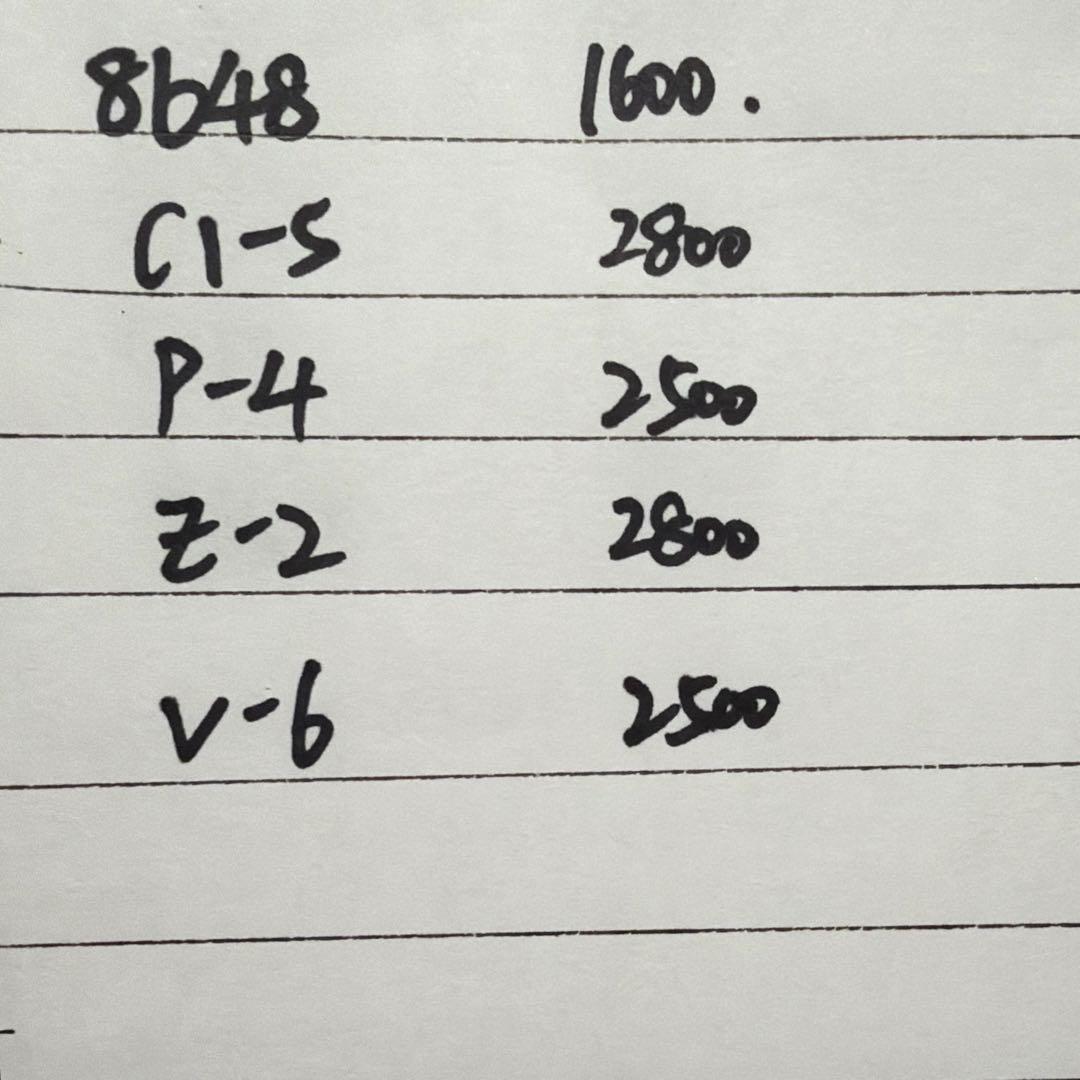 8648 1600.
C1-5 2800
P-4 2500
Z-2 2800
V-6 2500